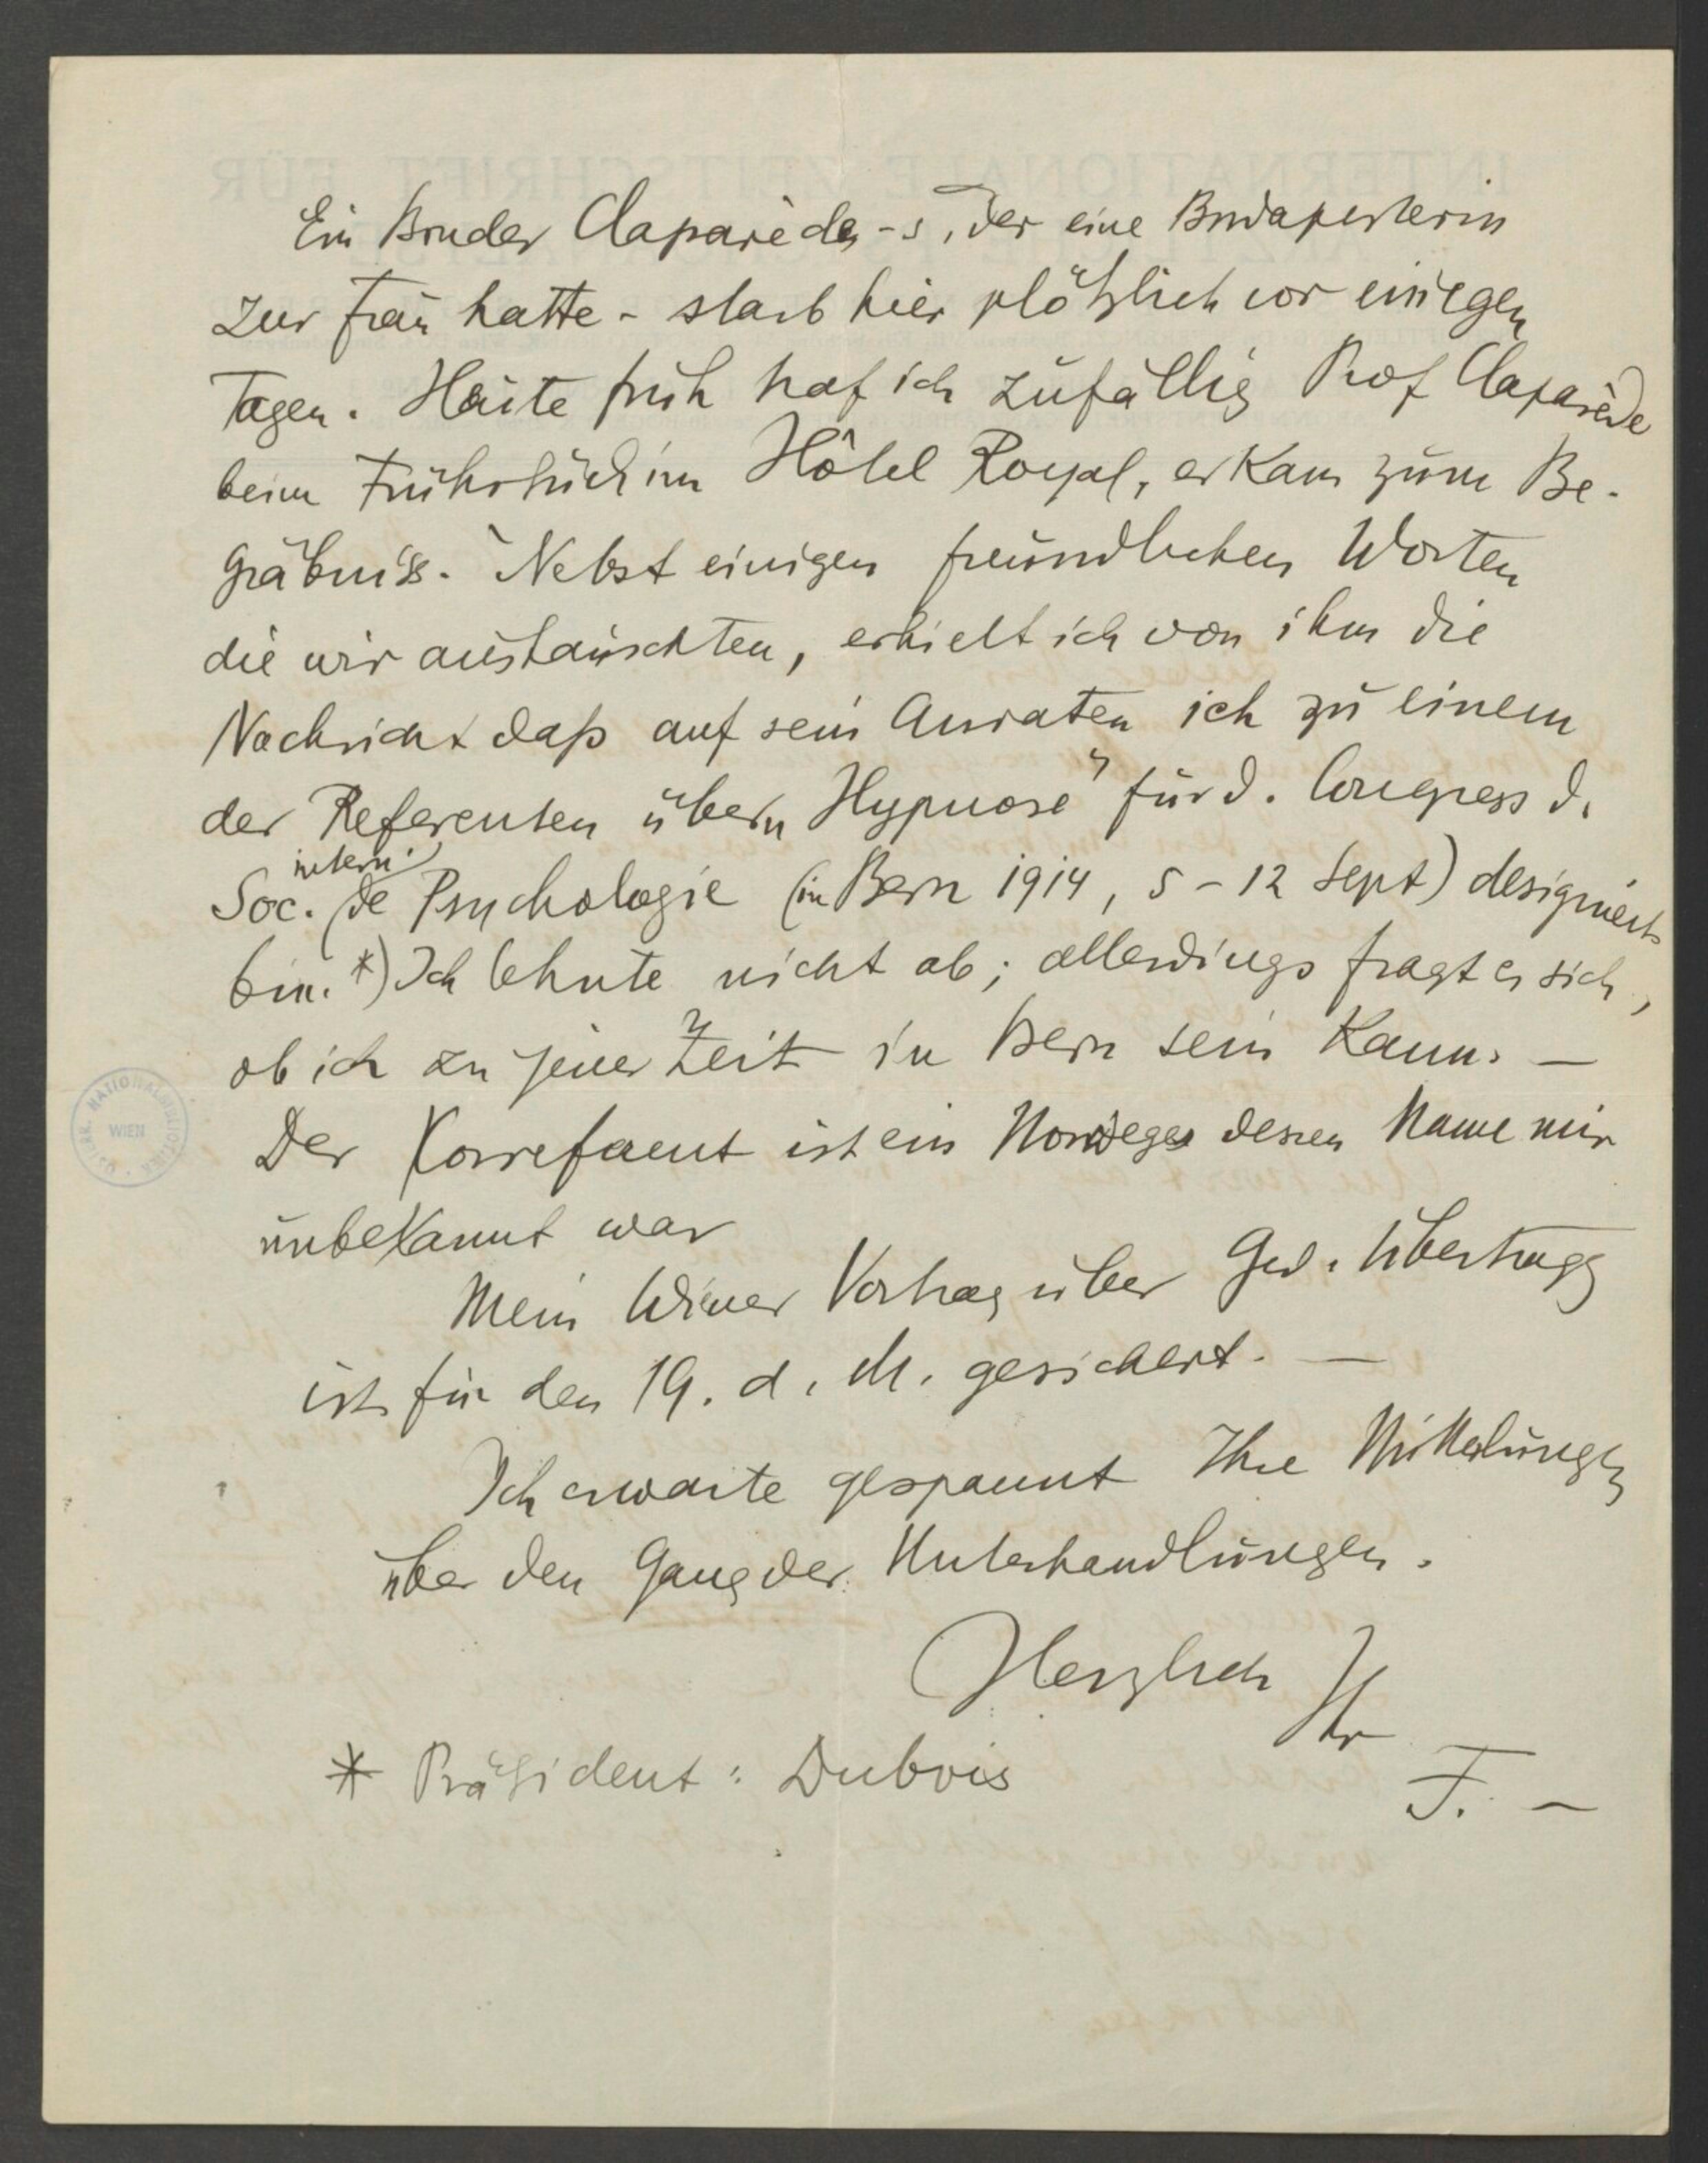 Ein Bruder Claparèdes -s, der eine Budapesterin
zur Frau hatte - starb hier plötzlich vor einigen
Tagen. Heute früh traf ich zufällig Prof Claparède
beim Frühstück im Hôtel Royal, er kam zum Be-
gräbniss. Nebst einigen freundlichen Worten
die wir austauschten, erhielt ich von ihm die
Nachricht daß auf sein Anraten ich zu einem
der Referenten über „Hypnose" für d. Congress d.
Soc. intern. de Psychologie (in Bern 1914, 5-12 Sept) designiert
bin. *) Ich lehnte nicht ab; allerdings fragt es sich,
ob ich zu jener Zeit in Bern sein kann. —
Der Korreferent ist ein Norweger dessen Name mir
unbekannt war
Mein Wiener Vortrag über Ged. Übertragg
ist für den 19. d. M. gesichert. —
Ich erwarte gespannt Ihre Mitteilungen
über den Gang der Unterhandlungen.
Herzlich Ihr
F. —
* Präsident: Dubois
WIEN